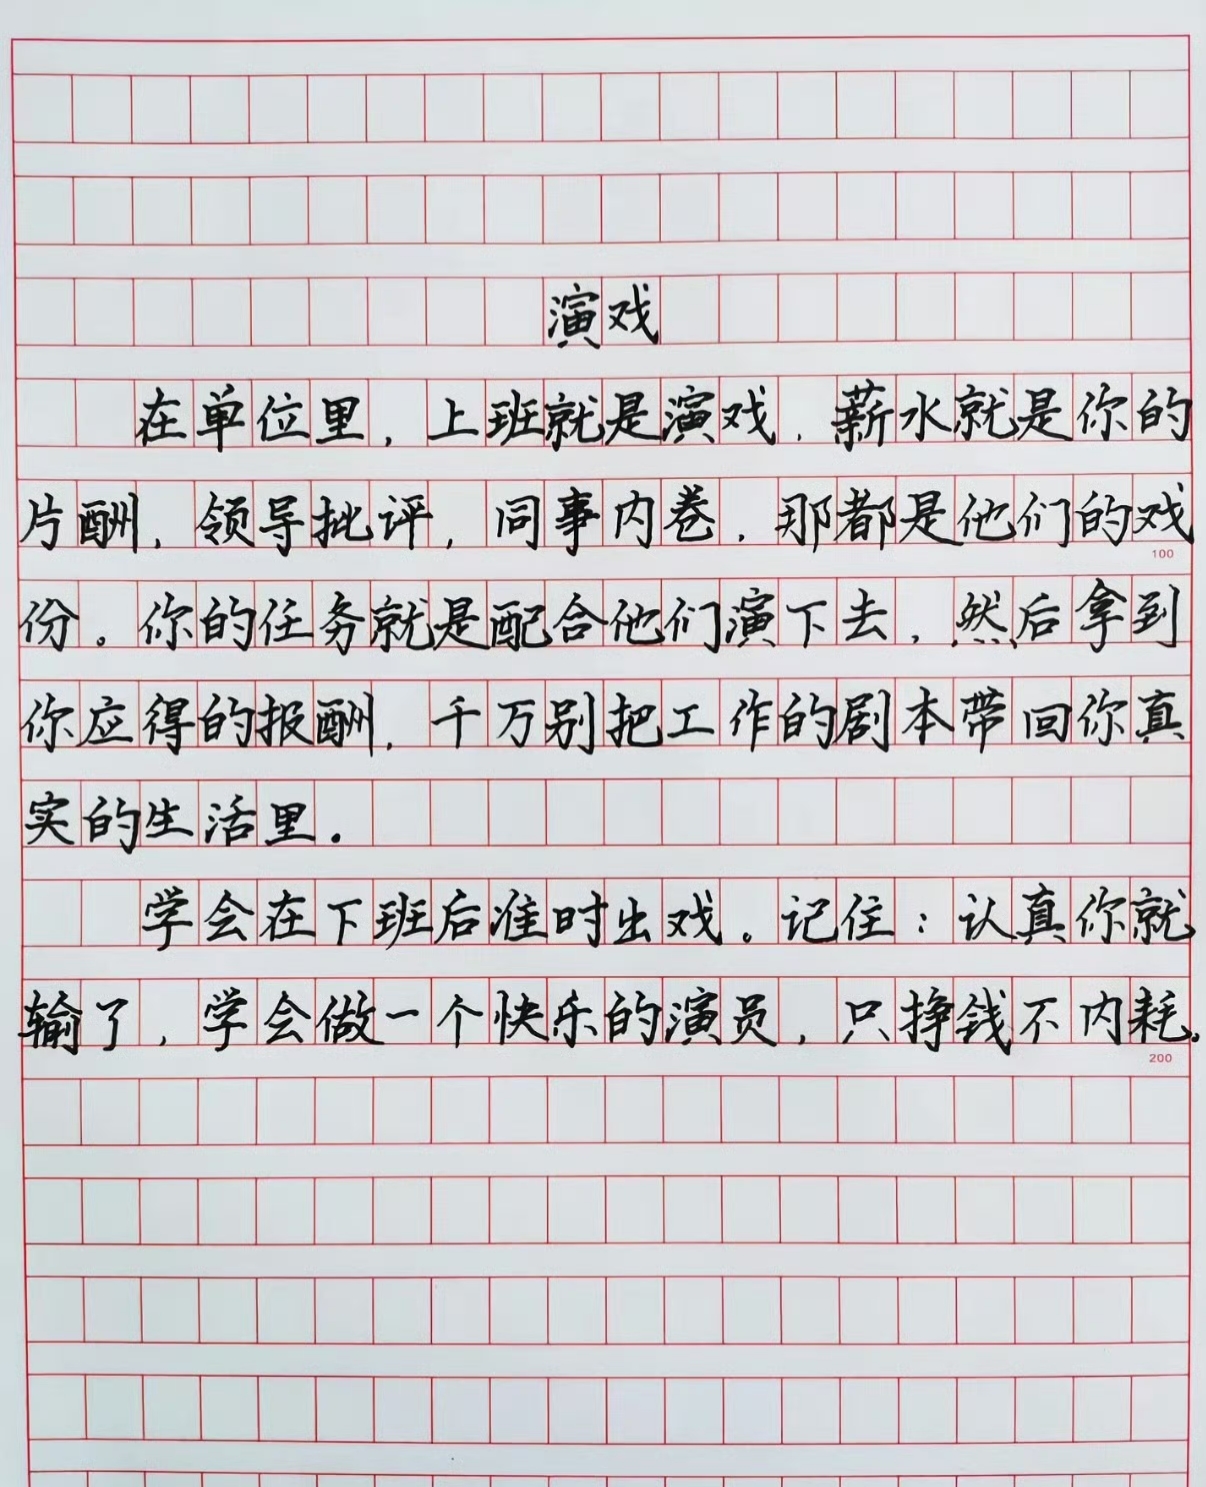 演戏
在单位里，上班就是演戏，薪水就是你的
片酬，领导批评，同事内卷，那都是他们的戏
100
份。你的任务就是配合他们演下去，然后拿到
你应得的报酬，千万别把工作的剧本带回你真
实的生活里。
学会在下班后准时出戏。记住：认真你就
输了，学会做一个快乐的演员，只挣钱不内耗.
200